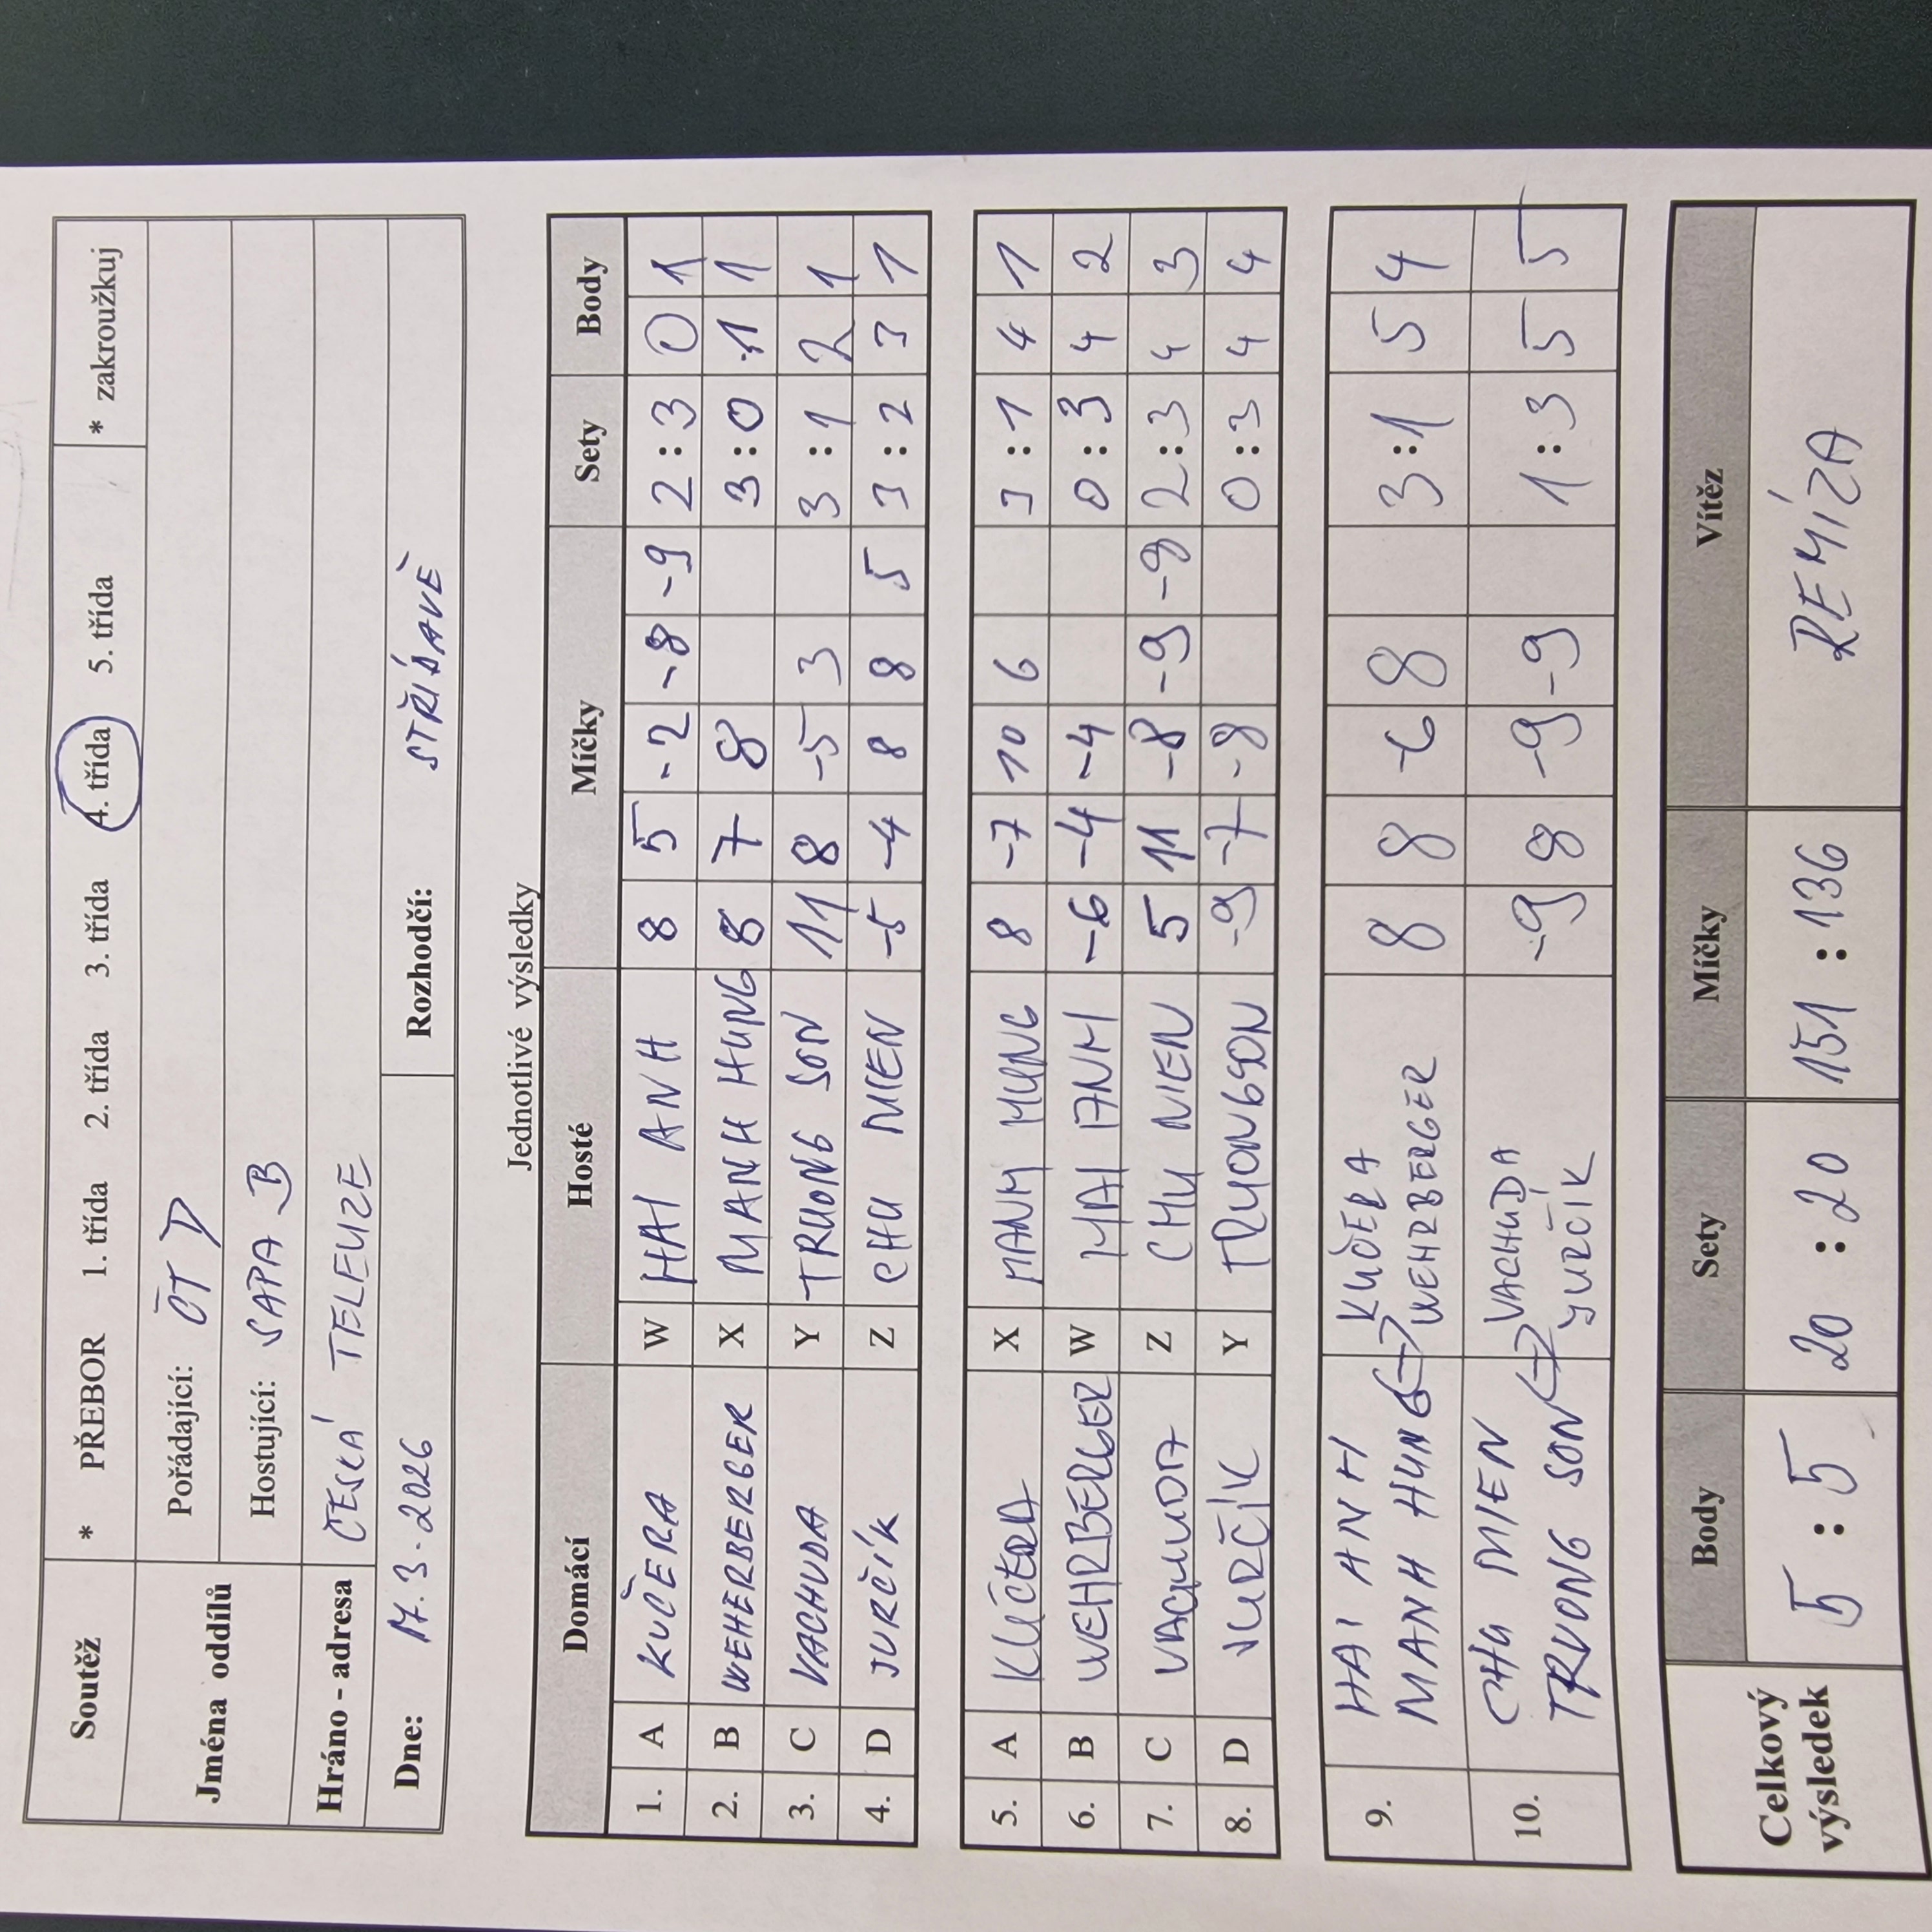 Soutěž * PŘEBOR 1. třída 2. třída 3. třída 4. třída 5. třída * zakroužkuj
Jména oddílů Pořádající: ČT D
Hostující: SAPA B
Hráno - adresa ČESKÁ TELEVIZE
Dne: 17.3.2026 Rozhodčí: STŘÍDAVĚ
Jednotlivé výsledky
Domácí Hosté Míčky Sety Body
1. A KUČERA W HAI ANH 8 5 -2 -8 -9 2 : 3 0 1
2. B WEHERBERGER X MANH HUNG 8 7 8 3 : 0 1 1
3. C VACHUDA Y TRUONG SON 11 8 -5 3 3 : 1 2 1
4. D JURČÍK Z CHU MIEN -5 -4 8 8 5 3 : 2 3 1
5. A KUČERA X MANH HUNG 8 -7 10 6 3 : 1 4 1
6. B WEHRBERGER W HAI ANH -6 -4 -4 0 : 3 4 2
7. C VACHUDA Z CHU MIEN 5 11 -8 -9 -9 2 : 3 4 3
8. D JURČÍK Y TRUONGSON -9 -7 -8 0 : 3 4 4
9. HAI ANH KUČERA 8 8 -6 8 3 : 1 5 4
MANH HUNG ↔ WEHRBERGER
10. CHU MIEN VACHUDA -9 8 -9 -9 1 : 3 5 5
TRUONG SON ↔ JURČÍK
Celkový výsledek Body Sety Míčky Vítěz
5 : 5 20 : 20 151 : 136 REMÍZA